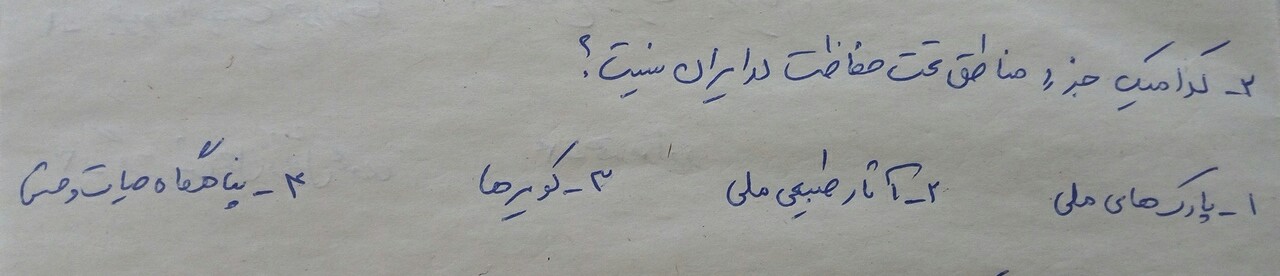 ۳- کدامیک جزء مناطق تحت حفاظت در ایران نیست؟
۱- پارک‌های ملی ۲- آثار طبیعی ملی ۳- کویرها ۴- پناهگاه حیات وحش